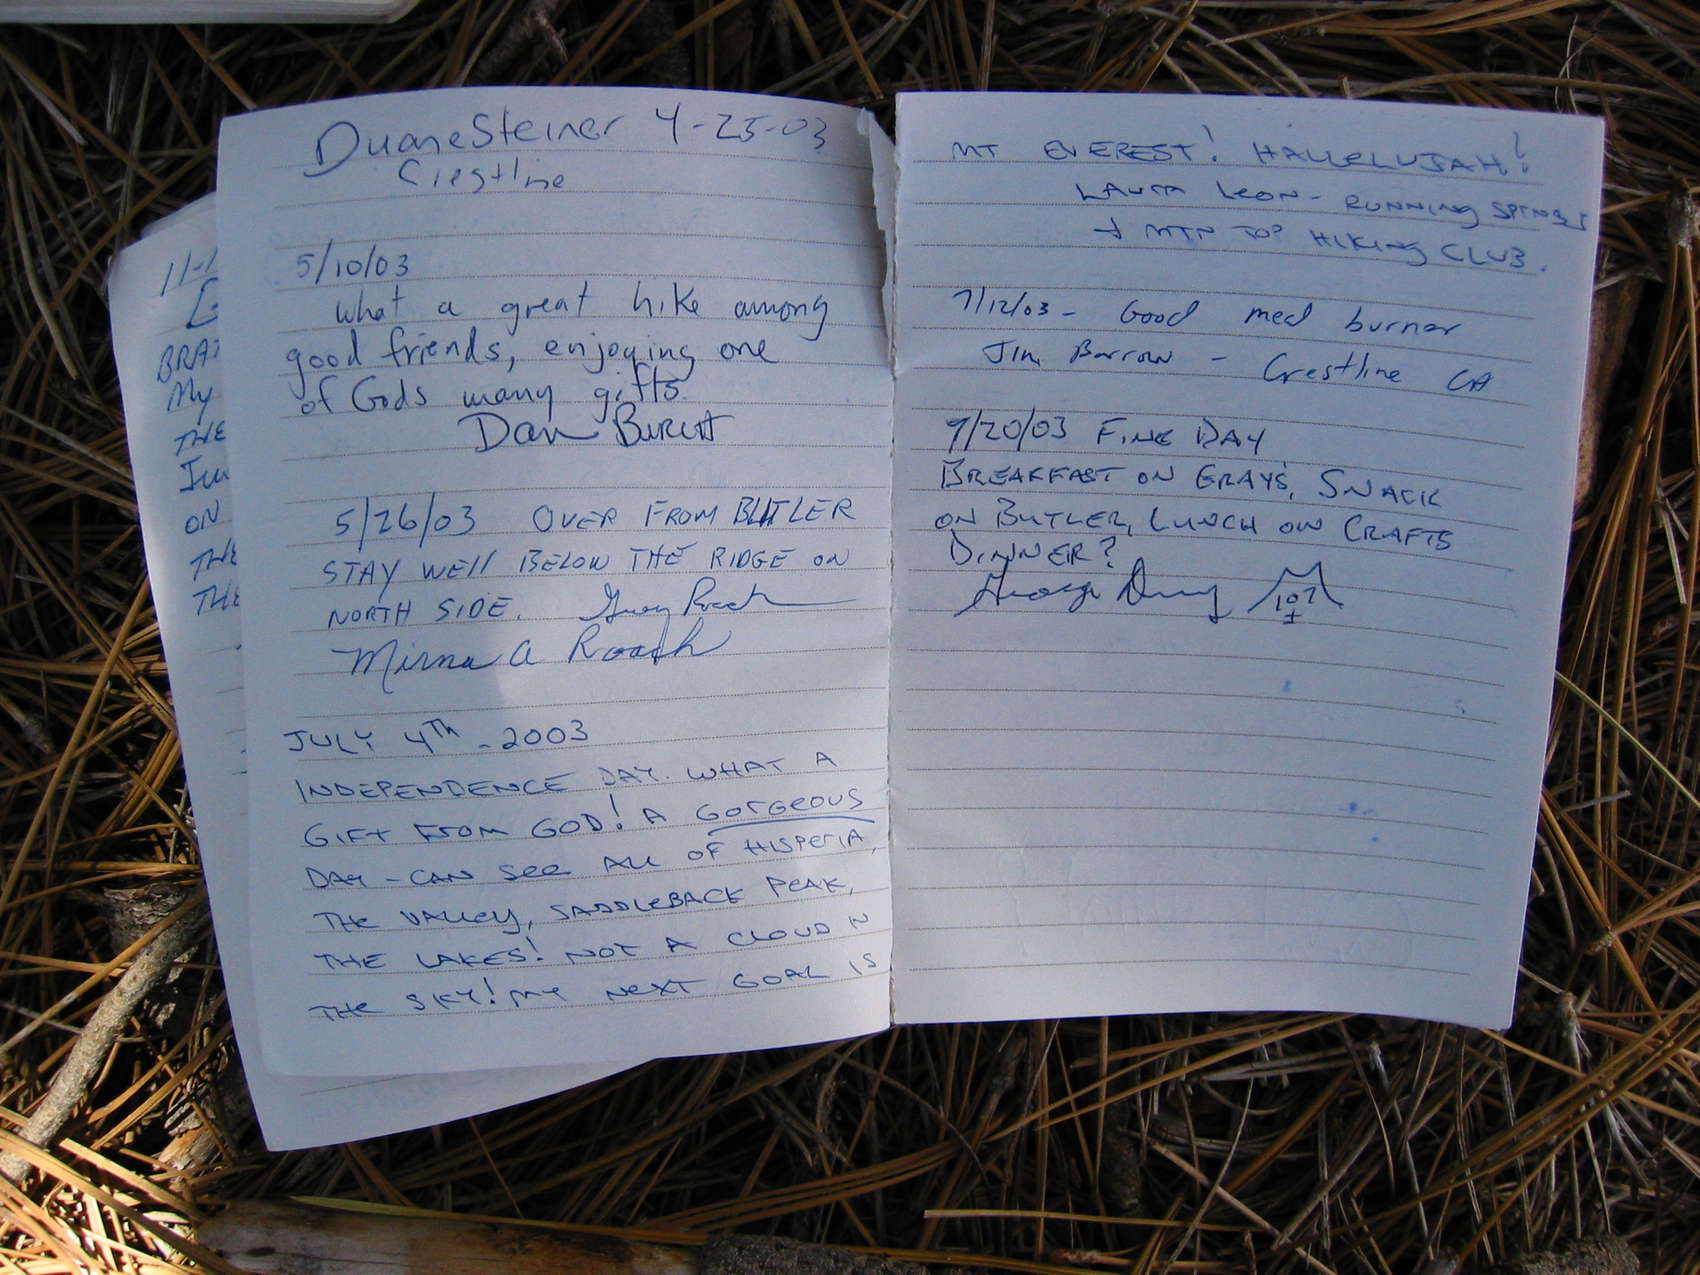 Duane Steiner 4-25-03
Crestline
5/10/03
What a great hike among
good friends, enjoying one
of Gods many gifts.
Dan Burcht
5/26/03 OVER FROM BUTLER
STAY WEll BELOW THE RIDGE ON
NORTH SIDE. Gerry Roach
Mirna A Roach
JULY 4Th - 2003
INDEPENDENCE DAY. WHAT A
GIFT FROM GOD! A GORGEOUS
DAY - CAN SEE ALL OF HISPERIA,
THE VALLEY, SADDLEBACK PEAK,
THE LAKES! NOT A CLOUD IN
THE SKY! MY NEXT GOAL IS
11-1
BRAT
My
THE
ON
THE
THE
MT EVEREST! HALLELUJAH!
LAURA LEON - RUNNING SPRINGS
+ MTN TOP HIKING CLUB.
7/12/03 - Good meal burner
Jim Barrow - Crestline CA
7/20/03 FINE DAY
BREAKFAST ON GRAYS, SNACK
ON BUTLER, LUNCH ON CRAFTS
DINNER?
George
107